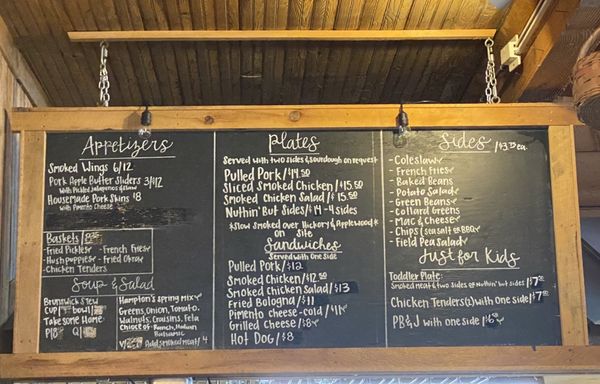 Appetizers
Smoked Wings 6/12
Pork Apple Butter Sliders 3/$12
with Pickled Jalapenos & Slaw
HouseMade Pork Skins $8
with Pimento Cheese
Baskets
-Fried Pickles -French Fries
-Hushpuppies -Fried Okra
-Chicken Tenders
Soup & Salad
Brunswick Stew
Cup Bowl
Take some Home
P Q
Hampton's Spring Mix
Greens, Onion, Tomato,
Walnuts, Craisins, Feta
Choice of: Ranch, Italian
Balsamic
Add smoked Meat/ 4
Plates
Served with two sides & sourdough on request
Pulled Pork/
Sliced Smoked Chicken/$15.50
Smoked Chicken Salad/$15.50
Nuthin' But Sides/$14 - 4 sides
*Slow smoked over Hickory & Applewood*
on site
Sandwiches
Served with one side
Pulled Pork/$12
Smoked Chicken/$12.50
Smoked Chicken Salad/$13
Fried Bologna/$11
Pimento cheese-cold/
Grilled Cheese/$8
Hot Dog/$8
Sides/$3.75 ea.
- Coleslaw
- French Fries
- Baked Beans
- Potato Salad
- Green Beans
- Collard Greens
- Mac & Cheese
- Chips (Sea Salt or BBQ)
- Field Pea Salad
Just for Kids
Toddler Plate:
Smoked Meat & two sides or Nuthin' but sides $7.50
Chicken Tenders(2) with one side/$7.50
PB & J with one side/$6